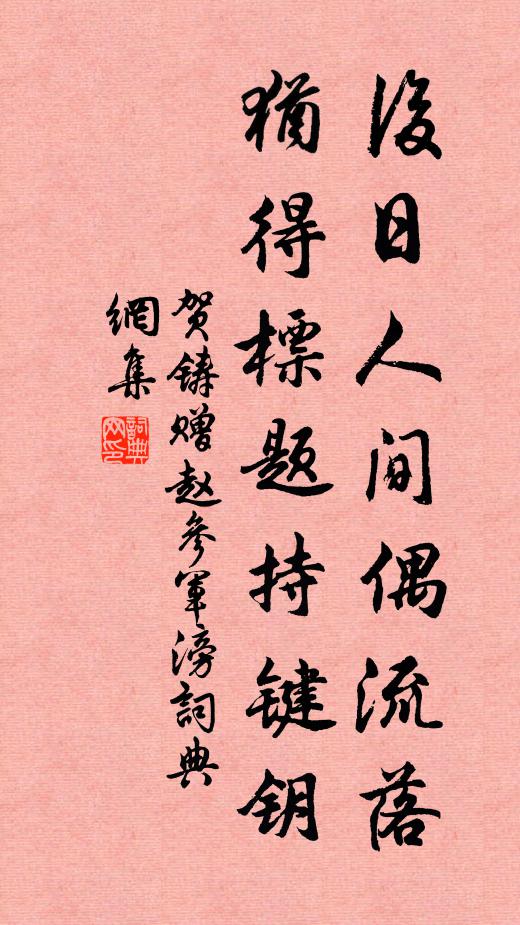 後日人间偶流落
猶得標题持键钥
贺铸赠赵參軍滂詞典
網集
詞典网印